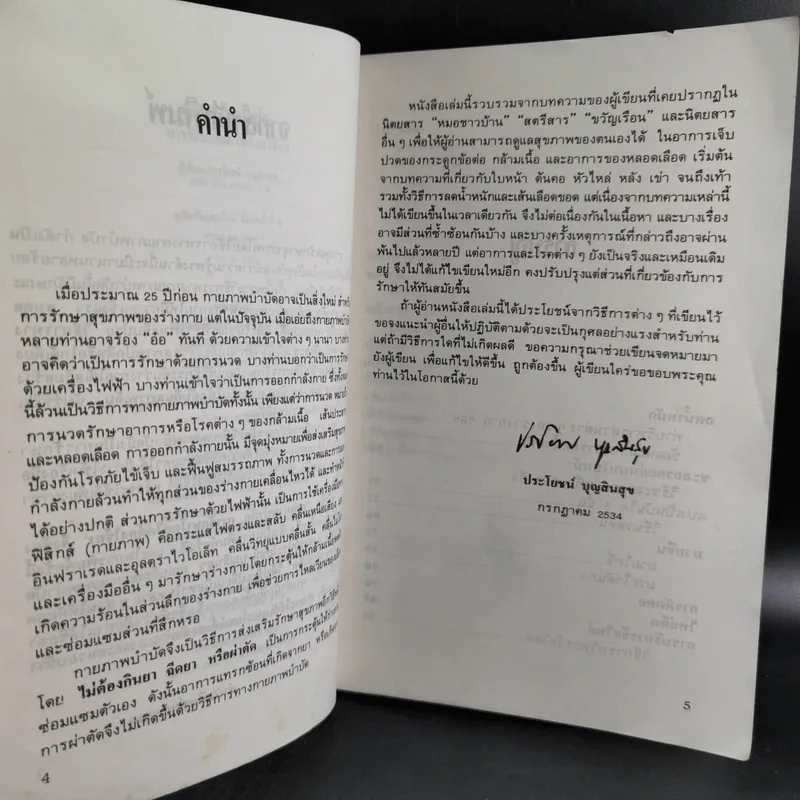 คำนำ
เมื่อประมาณ 25 ปีก่อน กายภาพบำบัดอาจเป็นสิ่งใหม่ สำหรับ
การรักษาสุขภาพของร่างกาย แต่ในปัจจุบัน เมื่อเอ่ยถึงกายภาพบำบัด
หลายท่านอาจร้อง “อ๋อ” ทันที ด้วยความเข้าใจต่าง ๆ นานา บางท่าน
อาจคิดว่าเป็นการรักษาด้วยการนวด บางท่านบอกว่าเป็นการรักษา
ด้วยเครื่องไฟฟ้า บางท่านเข้าใจว่าเป็นการออกกำลังกาย ซึ่งทั้งหมด
นี้ล้วนเป็นวิธีการทางกายภาพบำบัดทั้งนั้น เพียงแต่ว่าการนวด
การนวดรักษาอาการหรือโรคต่าง ๆ ของกล้ามเนื้อ เส้นประสาท
และหลอดเลือด การออกกำลังกายนั้น มีจุดมุ่งหมายเพื่อส่งเสริมสุขภาพ
ป้องกันโรคภัยไข้เจ็บ และฟื้นฟูสมรรถภาพ ทั้งการนวดและการออก
กำลังกายล้วนทำให้ทุกส่วนของร่างกายเคลื่อนไหวได้ และทำหน้าที่
ได้อย่างปกติ ส่วนการรักษาด้วยไฟฟ้านั้น เป็นการใช้เครื่องมือทาง
ฟิสิกส์ (กายภาพ) คือกระแสไฟตรงและสลับ คลื่นเหนือเสียง
อินฟราเรดและอุลตราไวโอเล็ท คลื่นวิทยุแบบคลื่นสั้น
และเครื่องมืออื่น ๆ มารักษาร่างกายโดยกระตุ้นให้กล้ามเนื้อ
เกิดความร้อนในส่วนลึกของร่างกาย เพื่อช่วยการไหลเวียนของเลือด
และซ่อมแซมส่วนที่สึกหรอ
กายภาพบำบัดจึงเป็นวิธีการส่งเสริมรักษาสุขภาพอีกวิธีหนึ่ง
โดย ไม่ต้องกินยา ฉีดยา หรือผ่าตัด เป็นการกระตุ้นให้ร่างกาย
ซ่อมแซมตัวเอง ดังนั้นอาการแทรกซ้อนที่เกิดจากยา หรือเกิดจาก
การผ่าตัดจึงไม่เกิดขึ้นด้วยวิธีการทางกายภาพบำบัด
4
หนังสือเล่มนี้รวบรวมจากบทความของผู้เขียนที่เคยปรากฏใน
นิตยสาร “หมอชาวบ้าน” “สตรีสาร” “ขวัญเรือน” และนิตยสาร
อื่น ๆ เพื่อให้ผู้อ่านสามารถดูแลสุขภาพของตนเองได้ ในอาการเจ็บ
ปวดของกระดูกข้อต่อ กล้ามเนื้อ และอาการของหลอดเลือด เริ่มต้น
จากบทความที่เกี่ยวกับใบหน้า ต้นคอ หัวไหล่ หลัง เข่า จนถึงเท้า
รวมทั้งวิธีการลดน้ำหนักและเส้นเลือดขอด แต่เนื่องจากบทความเหล่านี้
ไม่ได้เขียนขึ้นในเวลาเดียวกัน จึงไม่ต่อเนื่องกันในเนื้อหา และบางเรื่อง
อาจมีส่วนที่ซ้ำซ้อนกันบ้าง และบางครั้งเหตุการณ์ที่กล่าวถึงอาจผ่าน
พ้นไปแล้วหลายปี แต่อาการและโรคต่าง ๆ ยังเป็นจริงและเหมือนเดิม
อยู่ จึงไม่ได้แก้ไขเขียนใหม่อีก คงปรับปรุงแต่ส่วนที่เกี่ยวข้องกับการ
รักษาให้ทันสมัยขึ้น
ถ้าผู้อ่านหนังสือเล่มนี้ได้ประโยชน์จากวิธีการต่าง ๆ ที่เขียนไว้
ขอจงแนะนำผู้อื่นให้ปฏิบัติตามด้วยจะเป็นกุศลอย่างแรงสำหรับท่าน
แต่ถ้ามีวิธีการใดที่ไม่เกิดผลดี ขอความกรุณาช่วยเขียนจดหมายมา
ยังผู้เขียน เพื่อแก้ไขให้ดีขึ้น ถูกต้องขึ้น ผู้เขียนใคร่ขอขอบพระคุณ
ท่านไว้ในโอกาสนี้ด้วย
ประโยชน์ บุญสินสุข
ประโยชน์ บุญสินสุข
กรกฎาคม 2534
5